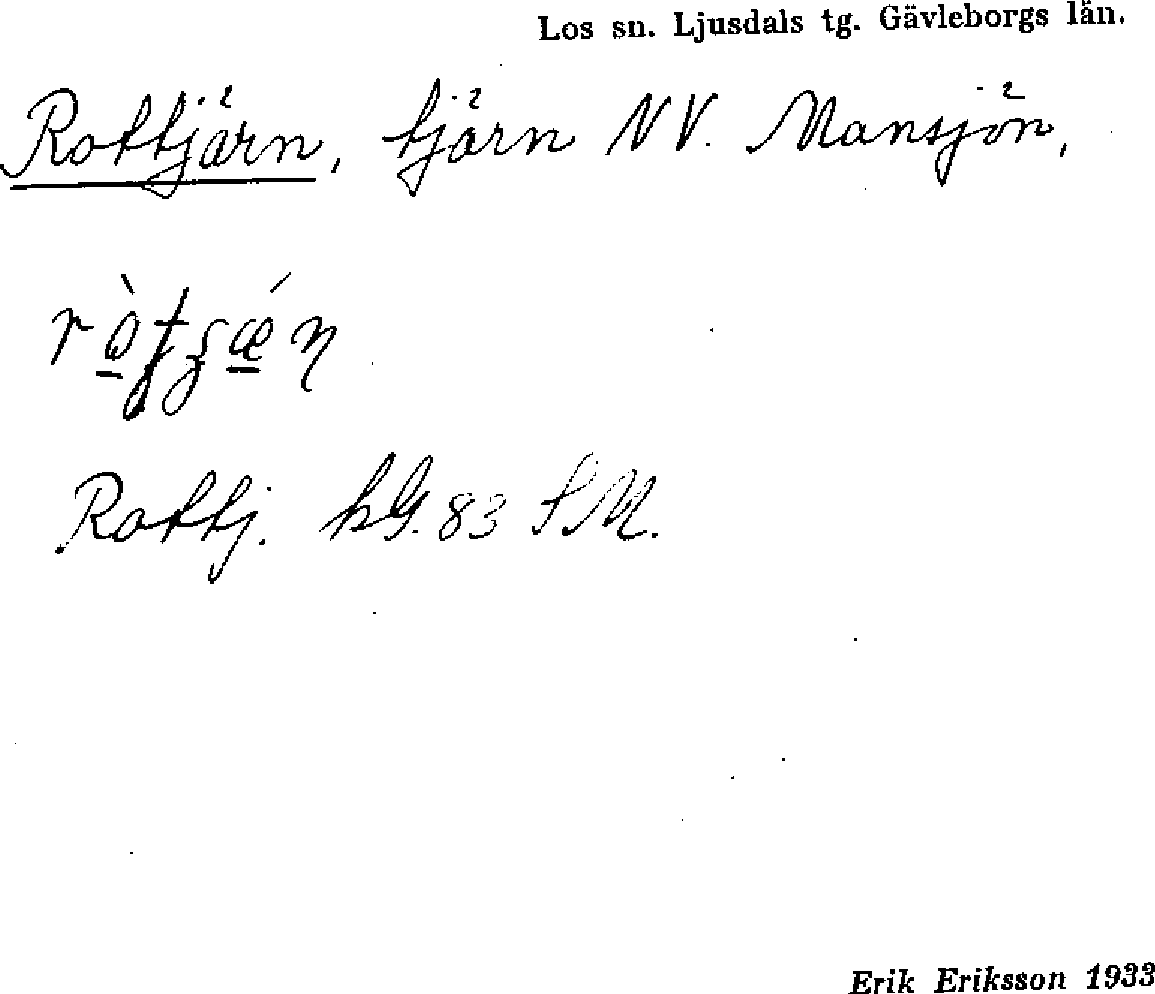 Los sn. Ljusdals tg. Gävleborgs län.
Rottjärn, tjärn NV. Mansjön,
Rottj. hG. 83 SM.
Erik Eriksson 1933